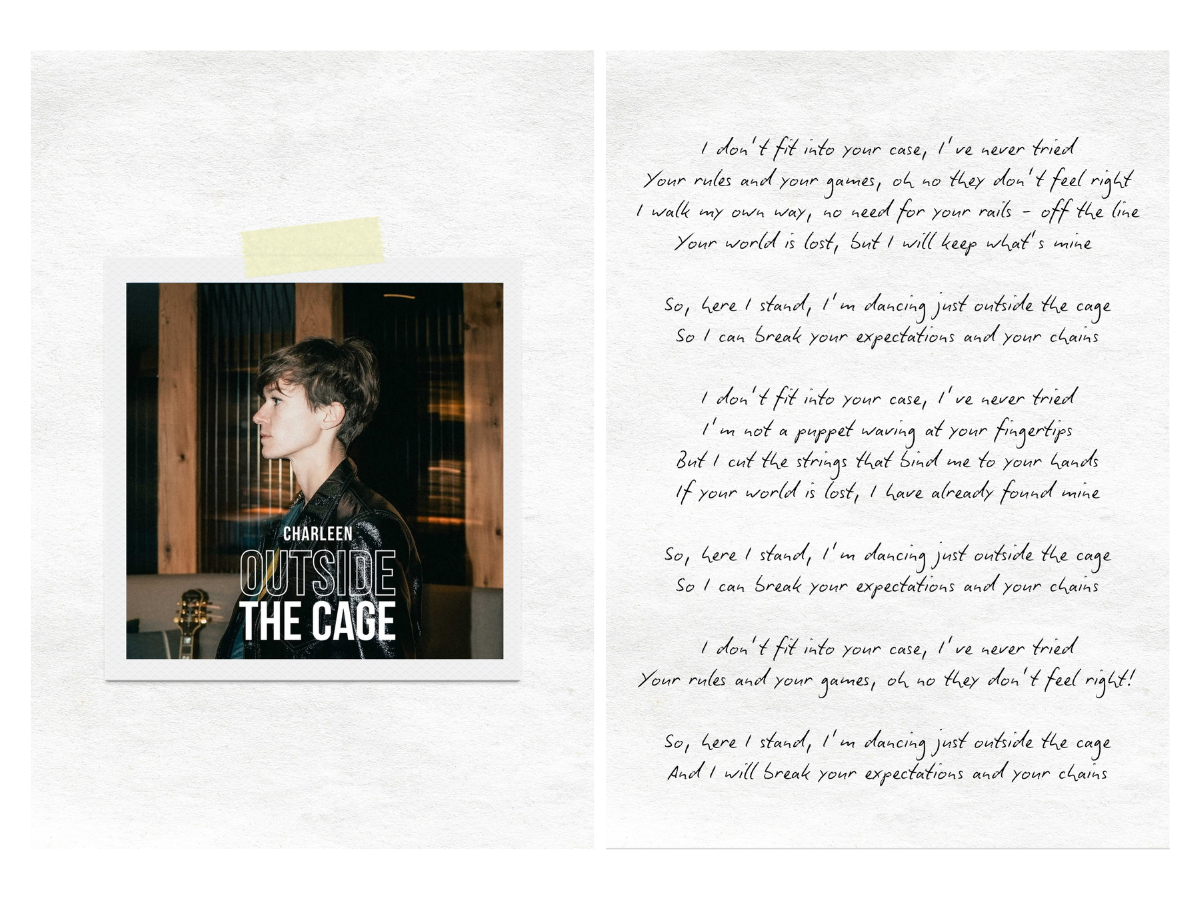 CHARLEEN
OUTSIDE
THE CAGE
I don't fit into your case, I've never tried
Your rules and your games, oh no they don't feel right
I walk my own way, no need for your rails - off the line
Your world is lost, but I will keep what's mine
So, here I stand, I'm dancing just outside the cage
So I can break your expectations and your chains
I don't fit into your case, I've never tried
I'm not a puppet waving at your fingertips
But I cut the strings that bind me to your hands
If your world is lost, I have already found mine
So, here I stand, I'm dancing just outside the cage
So I can break your expectations and your chains
I don't fit into your case, I've never tried
Your rules and your games, oh no they don't feel right!
So, here I stand, I'm dancing just outside the cage
And I will break your expectations and your chains